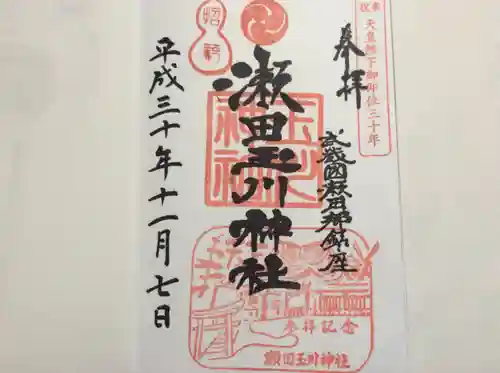 奉祝 天皇陛下御即位三十年
奉拝
武蔵國瀬田郷鎮座
瀬田玉川神社
玉川神社
平成三十年十一月七日
参拝記念
瀬田玉川神社